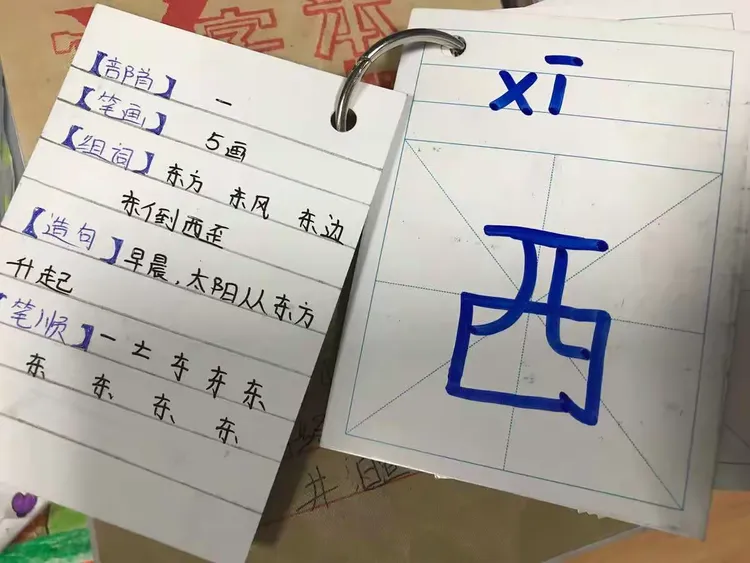 字本
【部首】 一
【笔画】 5画
【组词】 东方 东风 东边
东倒西歪
【造句】早晨,太阳从东方
升起
【笔顺】一 𠂇 车 东 东
东 东 东 东
xī
西
井